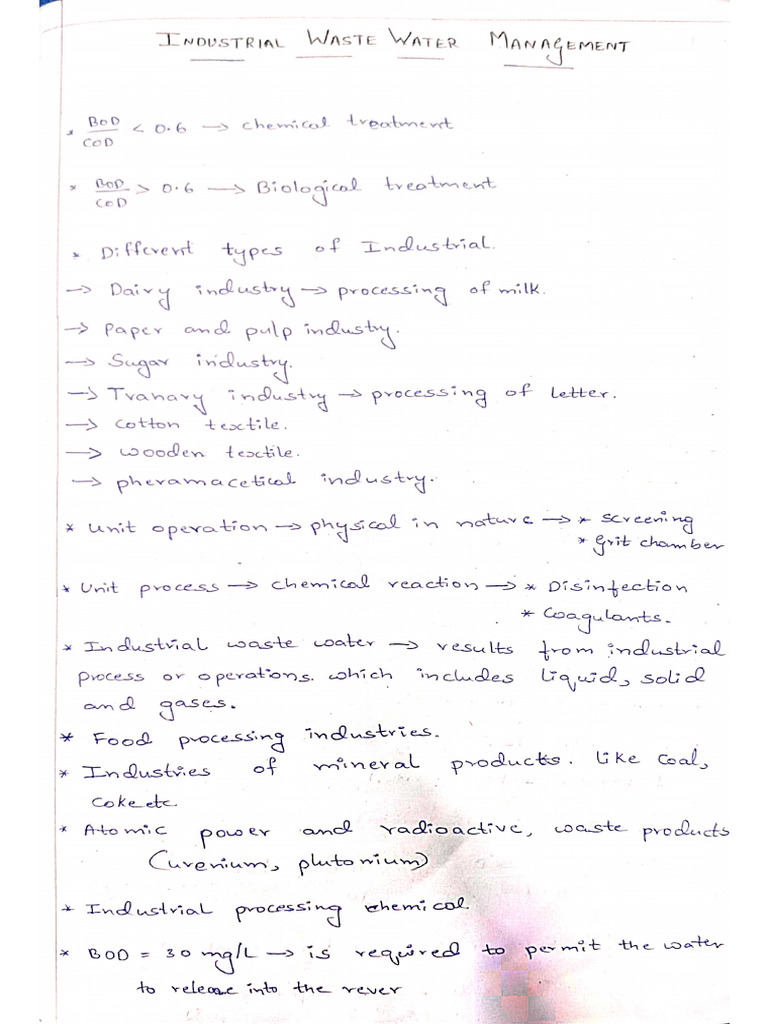 INDUSTRIAL WASTE WATER MANAGEMENT
* BOD/COD < 0.6 → chemical treatment
* BOD/COD > 0.6 → Biological treatment
* Different types of Industrial.
→ Dairy industry → processing of milk.
→ Paper and pulp industry.
→ Sugar industry.
→ Tranary industry → processing of letter.
→ cotton textile.
→ wooden textile.
→ pheramacetical industry.
* Unit operation → physical in nature → * screening
* Grit chamber
* Unit process → chemical reaction → * Disinfection
* Coagulants.
* Industrial waste water → results from industrial
process or operations. which includes liquid, solid
and gases.
* Food processing industries.
* Industries of mineral products. like coal,
coke etc.
* Atomic power and radioactive, waste products
(urenium, plutonium)
* Industrial processing chemical
* BOD = 30 mg/L → is required to permit the water
to release into the rever